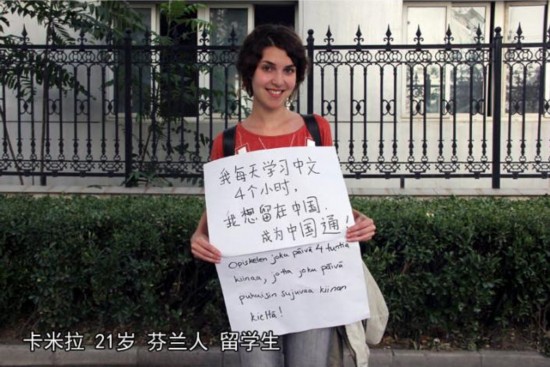 我每天学习中文
4个小时,
我想留在中国.
成为中国通!
Opiskelen joka päivä 4 tuntia
kiinaa, jotta joku päivä
puhuisin sujuvaa kiinan
kieltä!
卡米拉 21岁 芬兰人 留学生